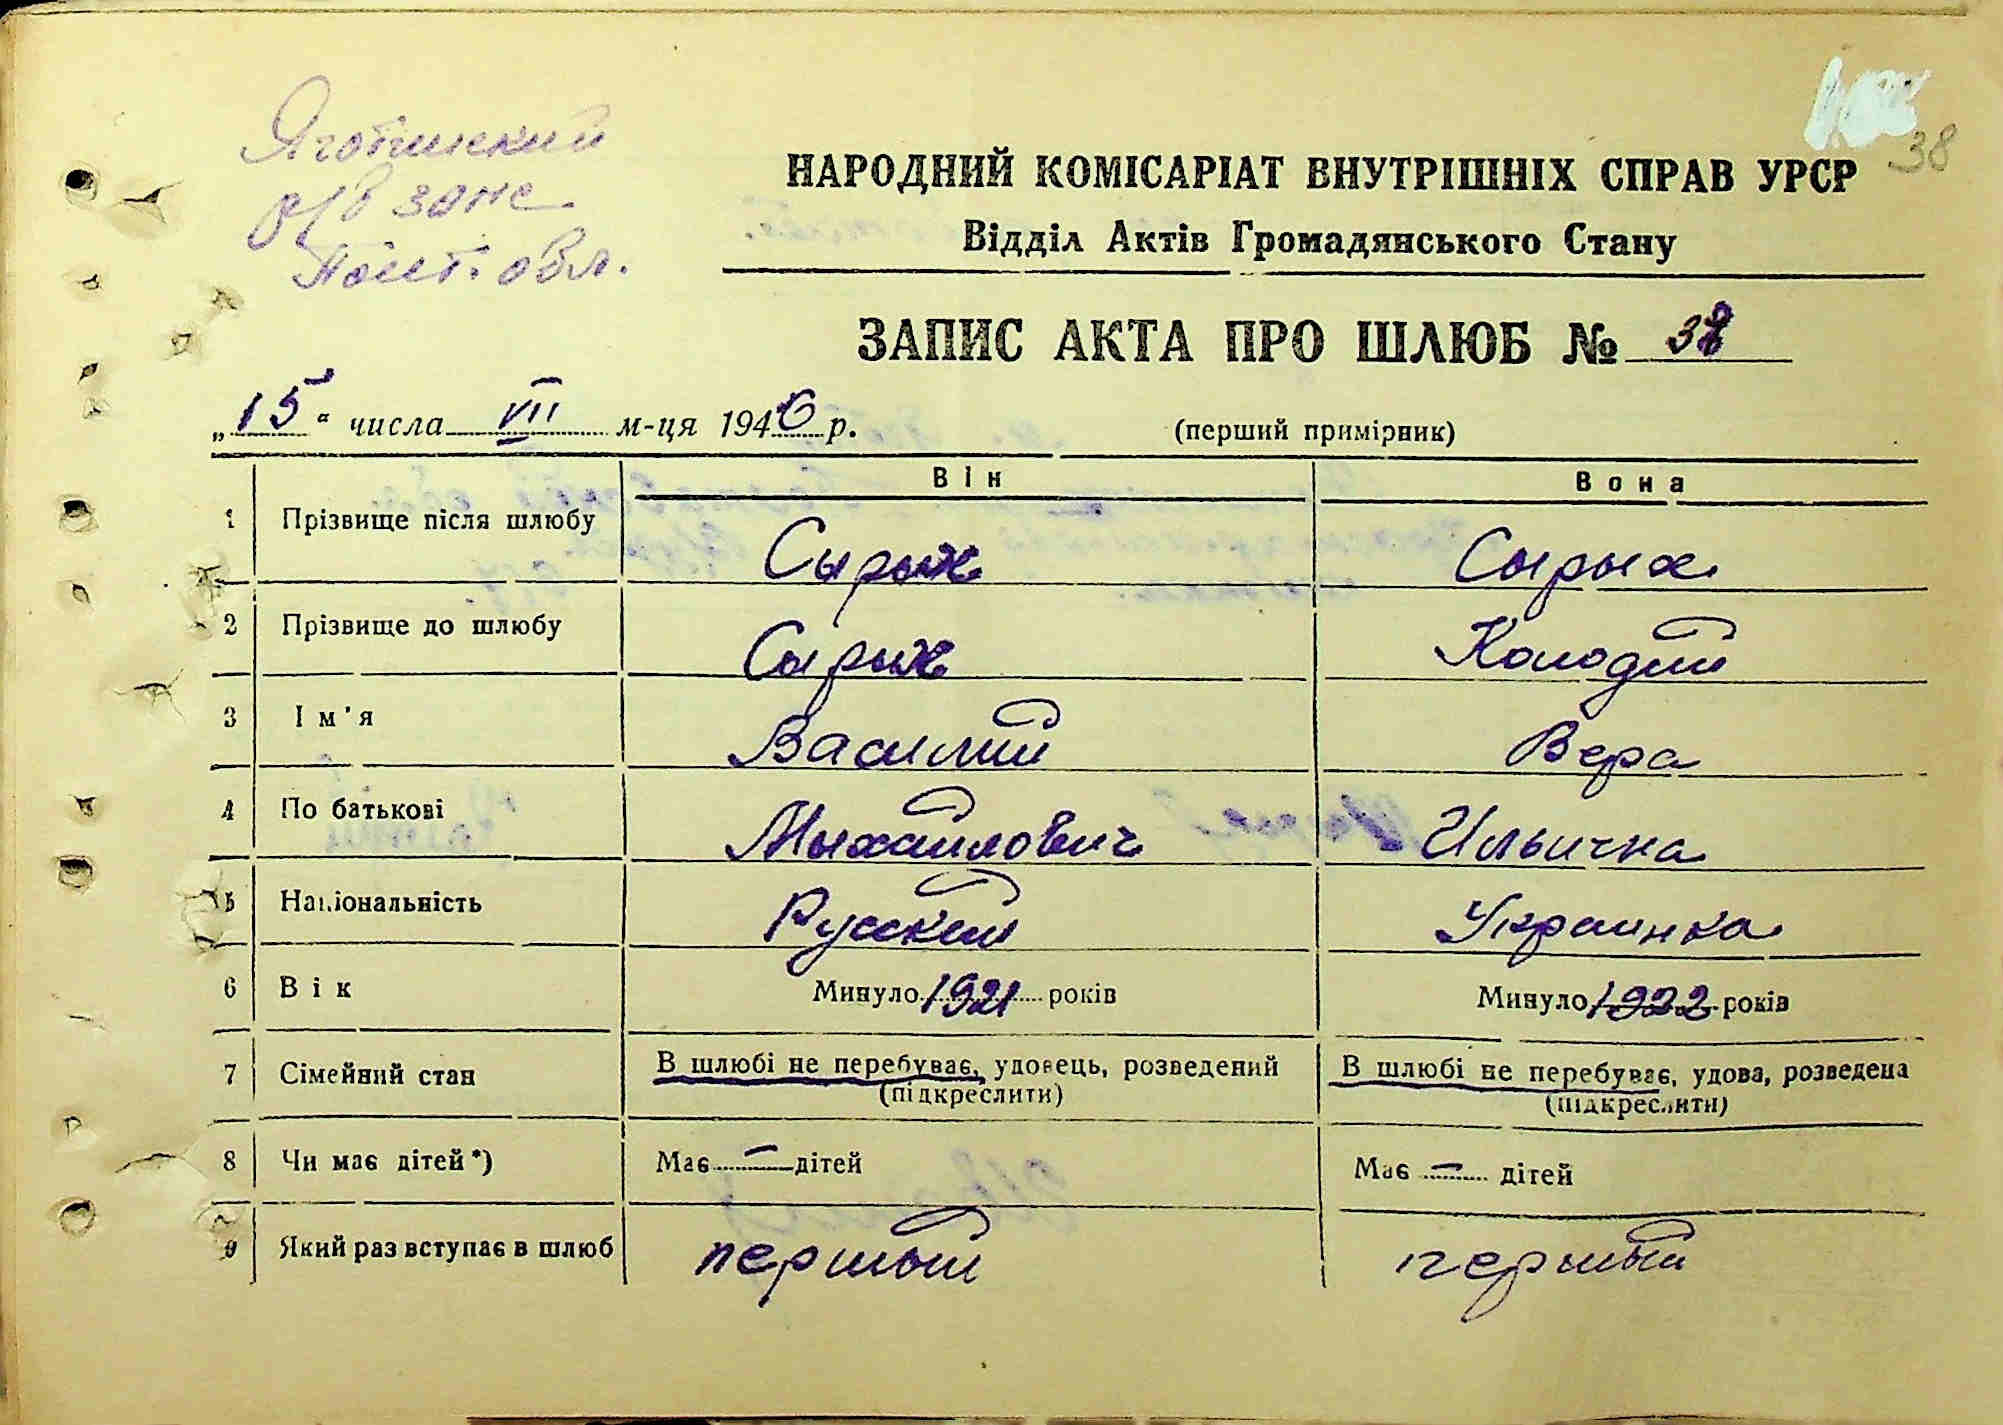 Яготинский
р/в загс
Полт. обл.
38
НАРОДНИЙ КОМІСАРІАТ ВНУТРІШНІХ СПРАВ УРСР
Відділ Актів Громадянського Стану
ЗАПИС АКТА ПРО ШЛЮБ № 38
„15“ числа VII м-ця 1946 р. (перший примірник)
Він Вона
1 Прізвище після шлюбу Сырых Сырых
2 Прізвище до шлюбу Сырых Колодий
3 Ім'я Василий Вера
4 По батькові Мыхайлович Ильична
5 Національність Русский Украинка
6 Вік Минуло 1921 років Минуло 1922 років
7 Сімейний стан В шлюбі не перебуває, удовець, розведений В шлюбі не перебуває, удова, розведена
(підкреслити) (підкреслити)
8 Чи має дітей*) Має — дітей Має — дітей
9 Який раз вступає в шлюб першый першый